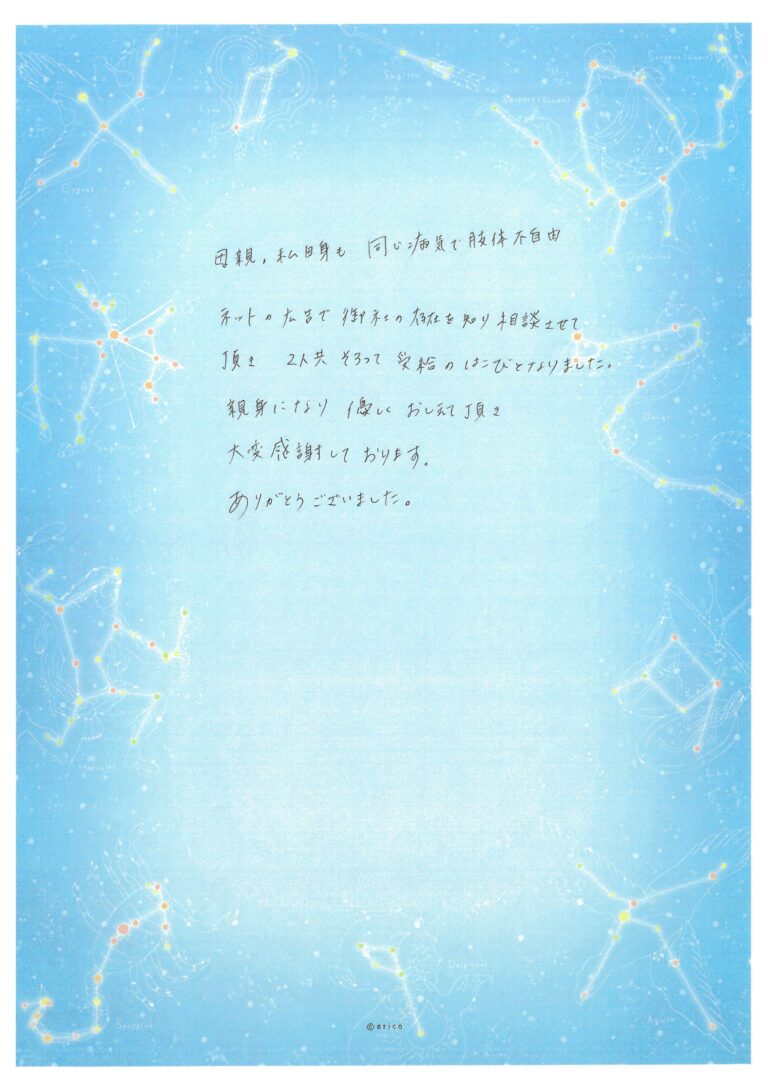 母親,私自身も 同じ病気で肢体不自由
ネットの広告で御社の存在を知り相談させて
頂き 2人共そろって受給のはこびとなりました。
親身になり優しくおしえて頂き
大変感謝しております。
ありがとうございました。
Cygnus
Lyra
Sagitta
Serpens (Cauda)
Serpens (Caput)
Ophiuchus
Sagittarius
Hercules
Libra
Scorpius
Delphinus
Aquila
©erico